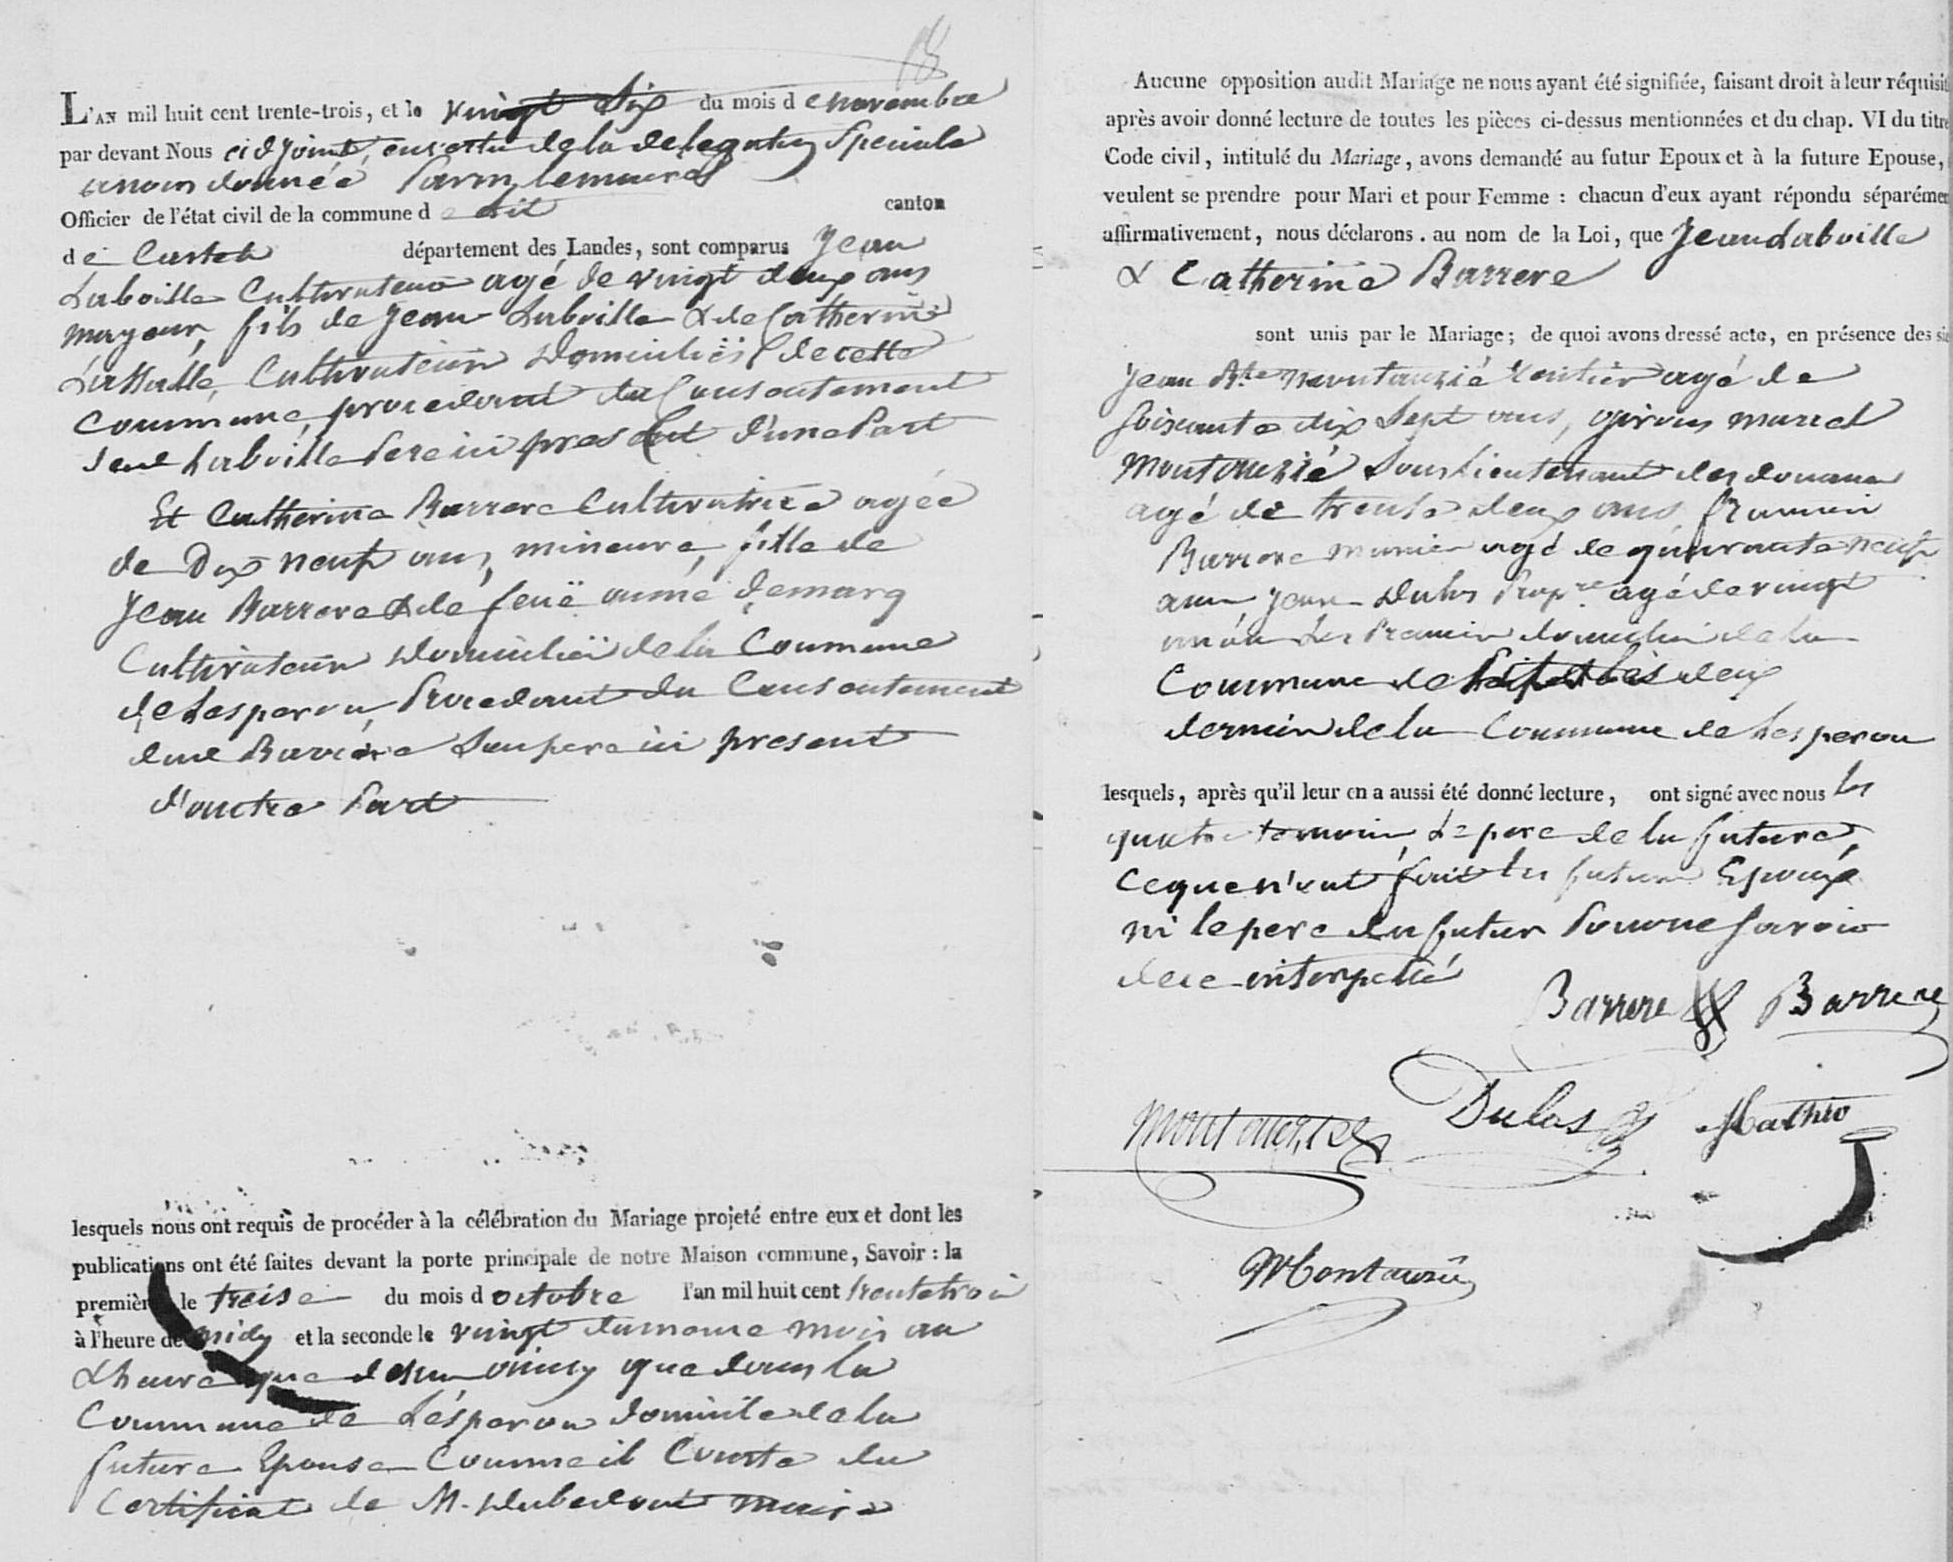 L'AN mil huit cent trente-trois, et le vingt Six du mois de novembre
par devant Nous adjoint, en vertu de la delegation Speciale
a nous donnée par m. le maire
Officier de l'état civil de la commune de Lit canton
de Castets département des Landes, sont comparus Jean
Laboille Cultivateur agé de vingt deux ans
mayeur, fils de Jean Laboille & de Catherine
Lassalle, Cultivateurs Domiciliés de cette
Commune, procedant du Consentement
dud Laboille Pere ici present d'une Part
Et Catherine Barrere Cultivatrice agée
de Dix neuf ans, mineure, fille de
Jean Barrere & de feuë aimé Demarq
Cultivateurs Domicilieï de la Commune
de Lesperon, Procedant du Consentement
dud Barrère Son pere ici present
d'autre Part
lesquels nous ont requis de procéder à la célébration du Mariage projeté entre eux et dont les
publications ont été faites devant la porte principale de notre Maison commune, Savoir : la
première le treise du mois d octobre l'an mil huit cent trente trois
à l'heure de midy et la seconde le vingt du meme mois an
& heure que dessus ainsy que dans la
Commune de Lésperon domicile de la
future Epouse Comme il Conste du
Certificat de M. Dubedout maire
Aucune opposition audit Mariage ne nous ayant été signifiée, faisant droit à leur réquisit
après avoir donné lecture de toutes les pièces ci-dessus mentionnées et du chap. VI du titre
Code civil, intitulé du Mariage, avons demandé au futur Epoux et à la future Epouse,
veulent se prendre pour Mari et pour Femme : chacun d'eux ayant répondu séparémen
affirmativement, nous déclarons. au nom de la Loi, que Jean Laboille
& Catherine Barrere
sont unis par le Mariage; de quoi avons dressé acte, en présence des si
Jean Bte Montauzié rentier agé de
Soixante dix Sept ans, marcel
Montauzié Sous Lieutenant des douanes
agé de trente deux ans,
Barrere agé de quarante neuf
ans Jean Dulas Propre agé de vingt
un an Les Premiers domiciliés de la
Commune de Lit & les deux
derniers de la Commune de Lesperon
lesquels, après qu'il leur en a aussi été donné lecture, ont signé avec nous les
quatre temoins, Le pere de la future,
Ce que n'ont fait les futurs Epoux
ni le pere du futur Pour ne Savoir
de ce interpellé
Barrere Barrere
Montauzié Dulas Mathio
M Montauzié